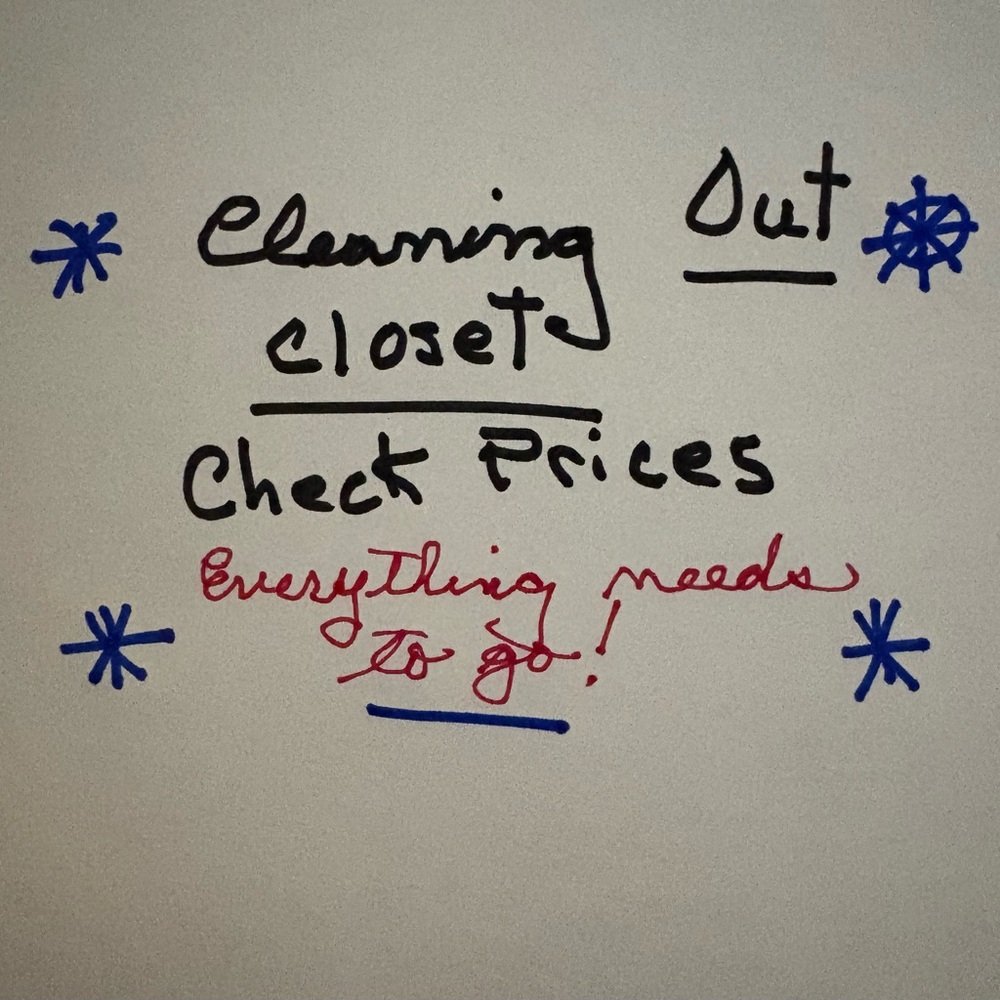 Cleaning Out
closet
Check Prices
Everything needs
to go!